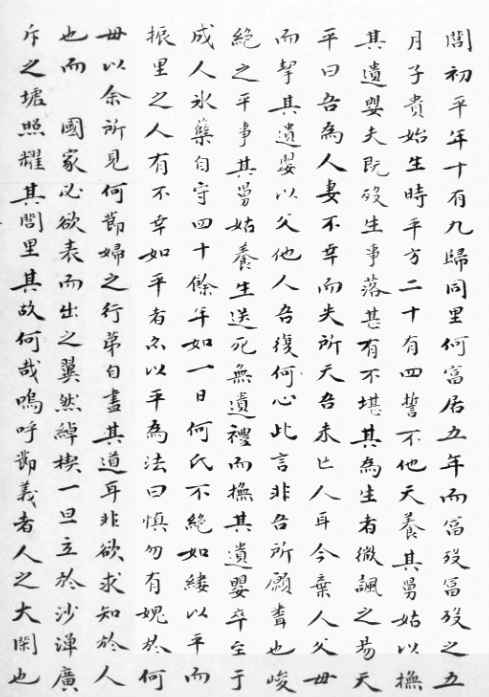 閭初平年十有九歸同里何富居五年而富歿富歿之五
月子貴始生時平方二十有四誓不他天養其舅姑以撫
其遺嬰夫既歿生事落甚有不堪其為生者微諷之易天
平曰吾為人妻不幸而失所天吾未亡人耳今棄人父母
而挈其遺嬰以父他人吾復何心此言非吾所願聞也峻
絕之平事其舅姑養生送死無遺禮而撫其遺嬰卒至于
成人氷蘗自守四十餘年如一日何氏不絕如縷以平而
振里之人有不幸如平者亦以平為法曰慎勿有媿於何
母以余所見何節婦之行苐自盡其道耳非欲求知於人
也而 國家必欲表而出之翼然綽楔一旦立於沙潬廣
斥之墟照耀其閭里其故何哉嗚呼節義者人之大閑也